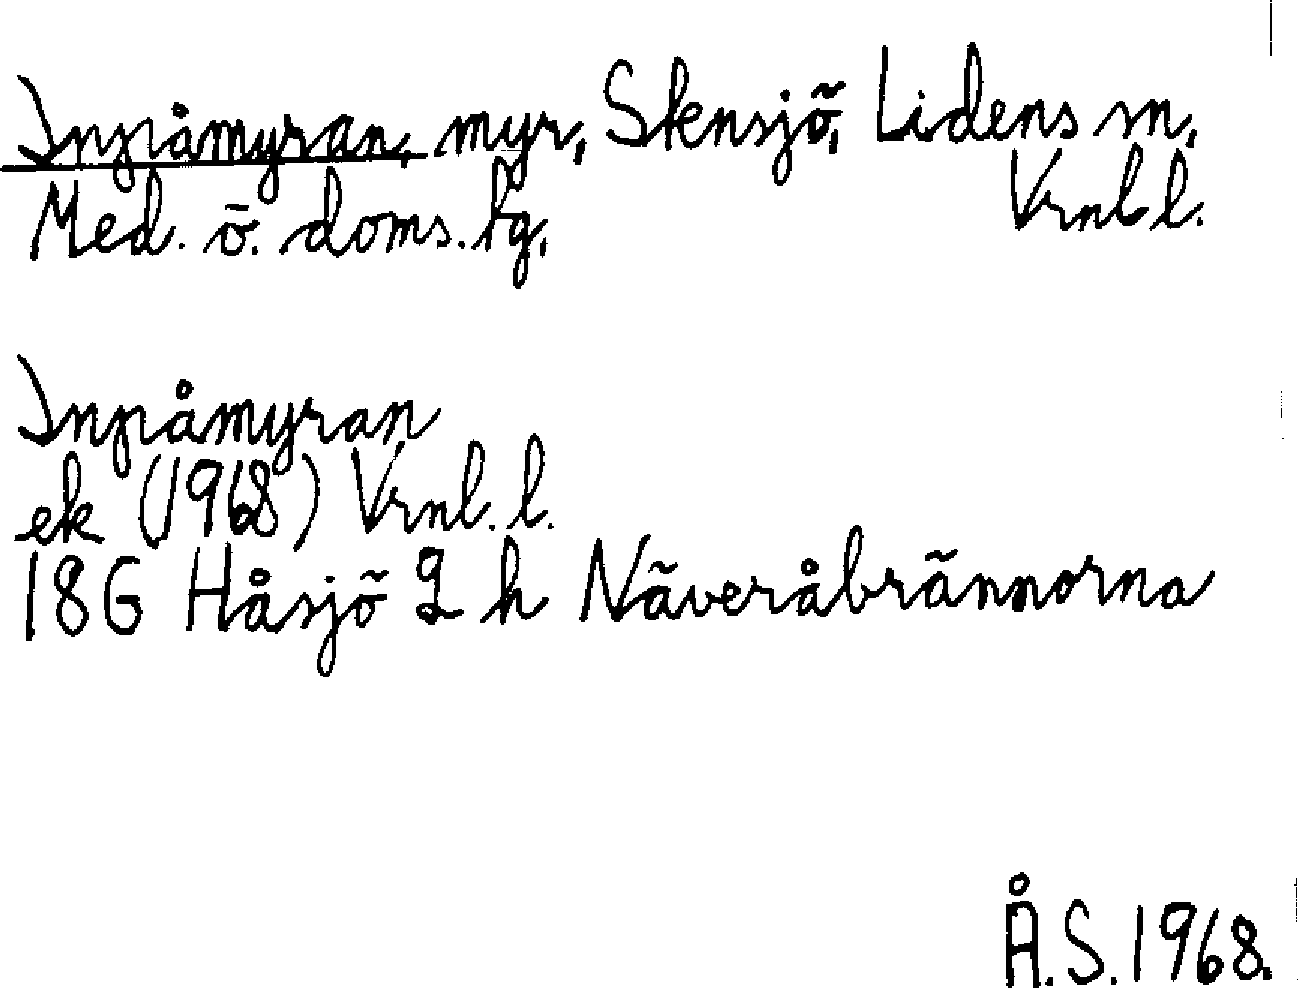 Inpåmyran, myr, Stensjö, Lidens sn,
Med. ö. doms. fg. Vrnl l.
Inpåmyran
ek (1968) Vrnl. l.
18G Håsjö 9 h Näveråbrännorna
Å.S. 1968.